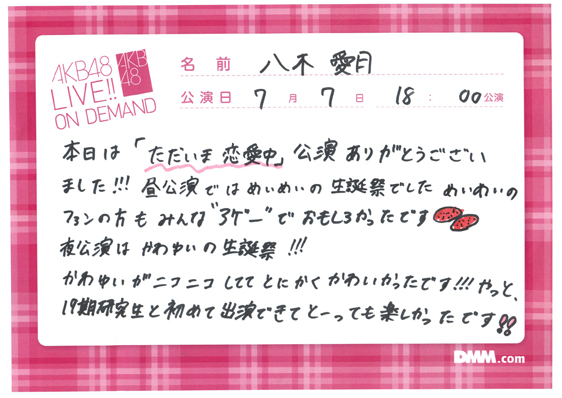 AKB48
LIVE!!
ON DEMAND
AKB
48
名前 八木 愛月
公演日 7月7日 18:00公演
本日は「ただいま 恋愛中」公演ありがとうござい
ました!!! 昼公演ではめいめいの生誕祭でした めいめいの
ファンの方もみんな"アゲー"でおもしろかったです
夜公演は かわゆいの生誕祭 !!!
かわゆいがニコニコしてて とにかく かわいかったです!!! やっと、
19期研究生と初めて出演できて とーっても楽しかったです!!
DMM.com